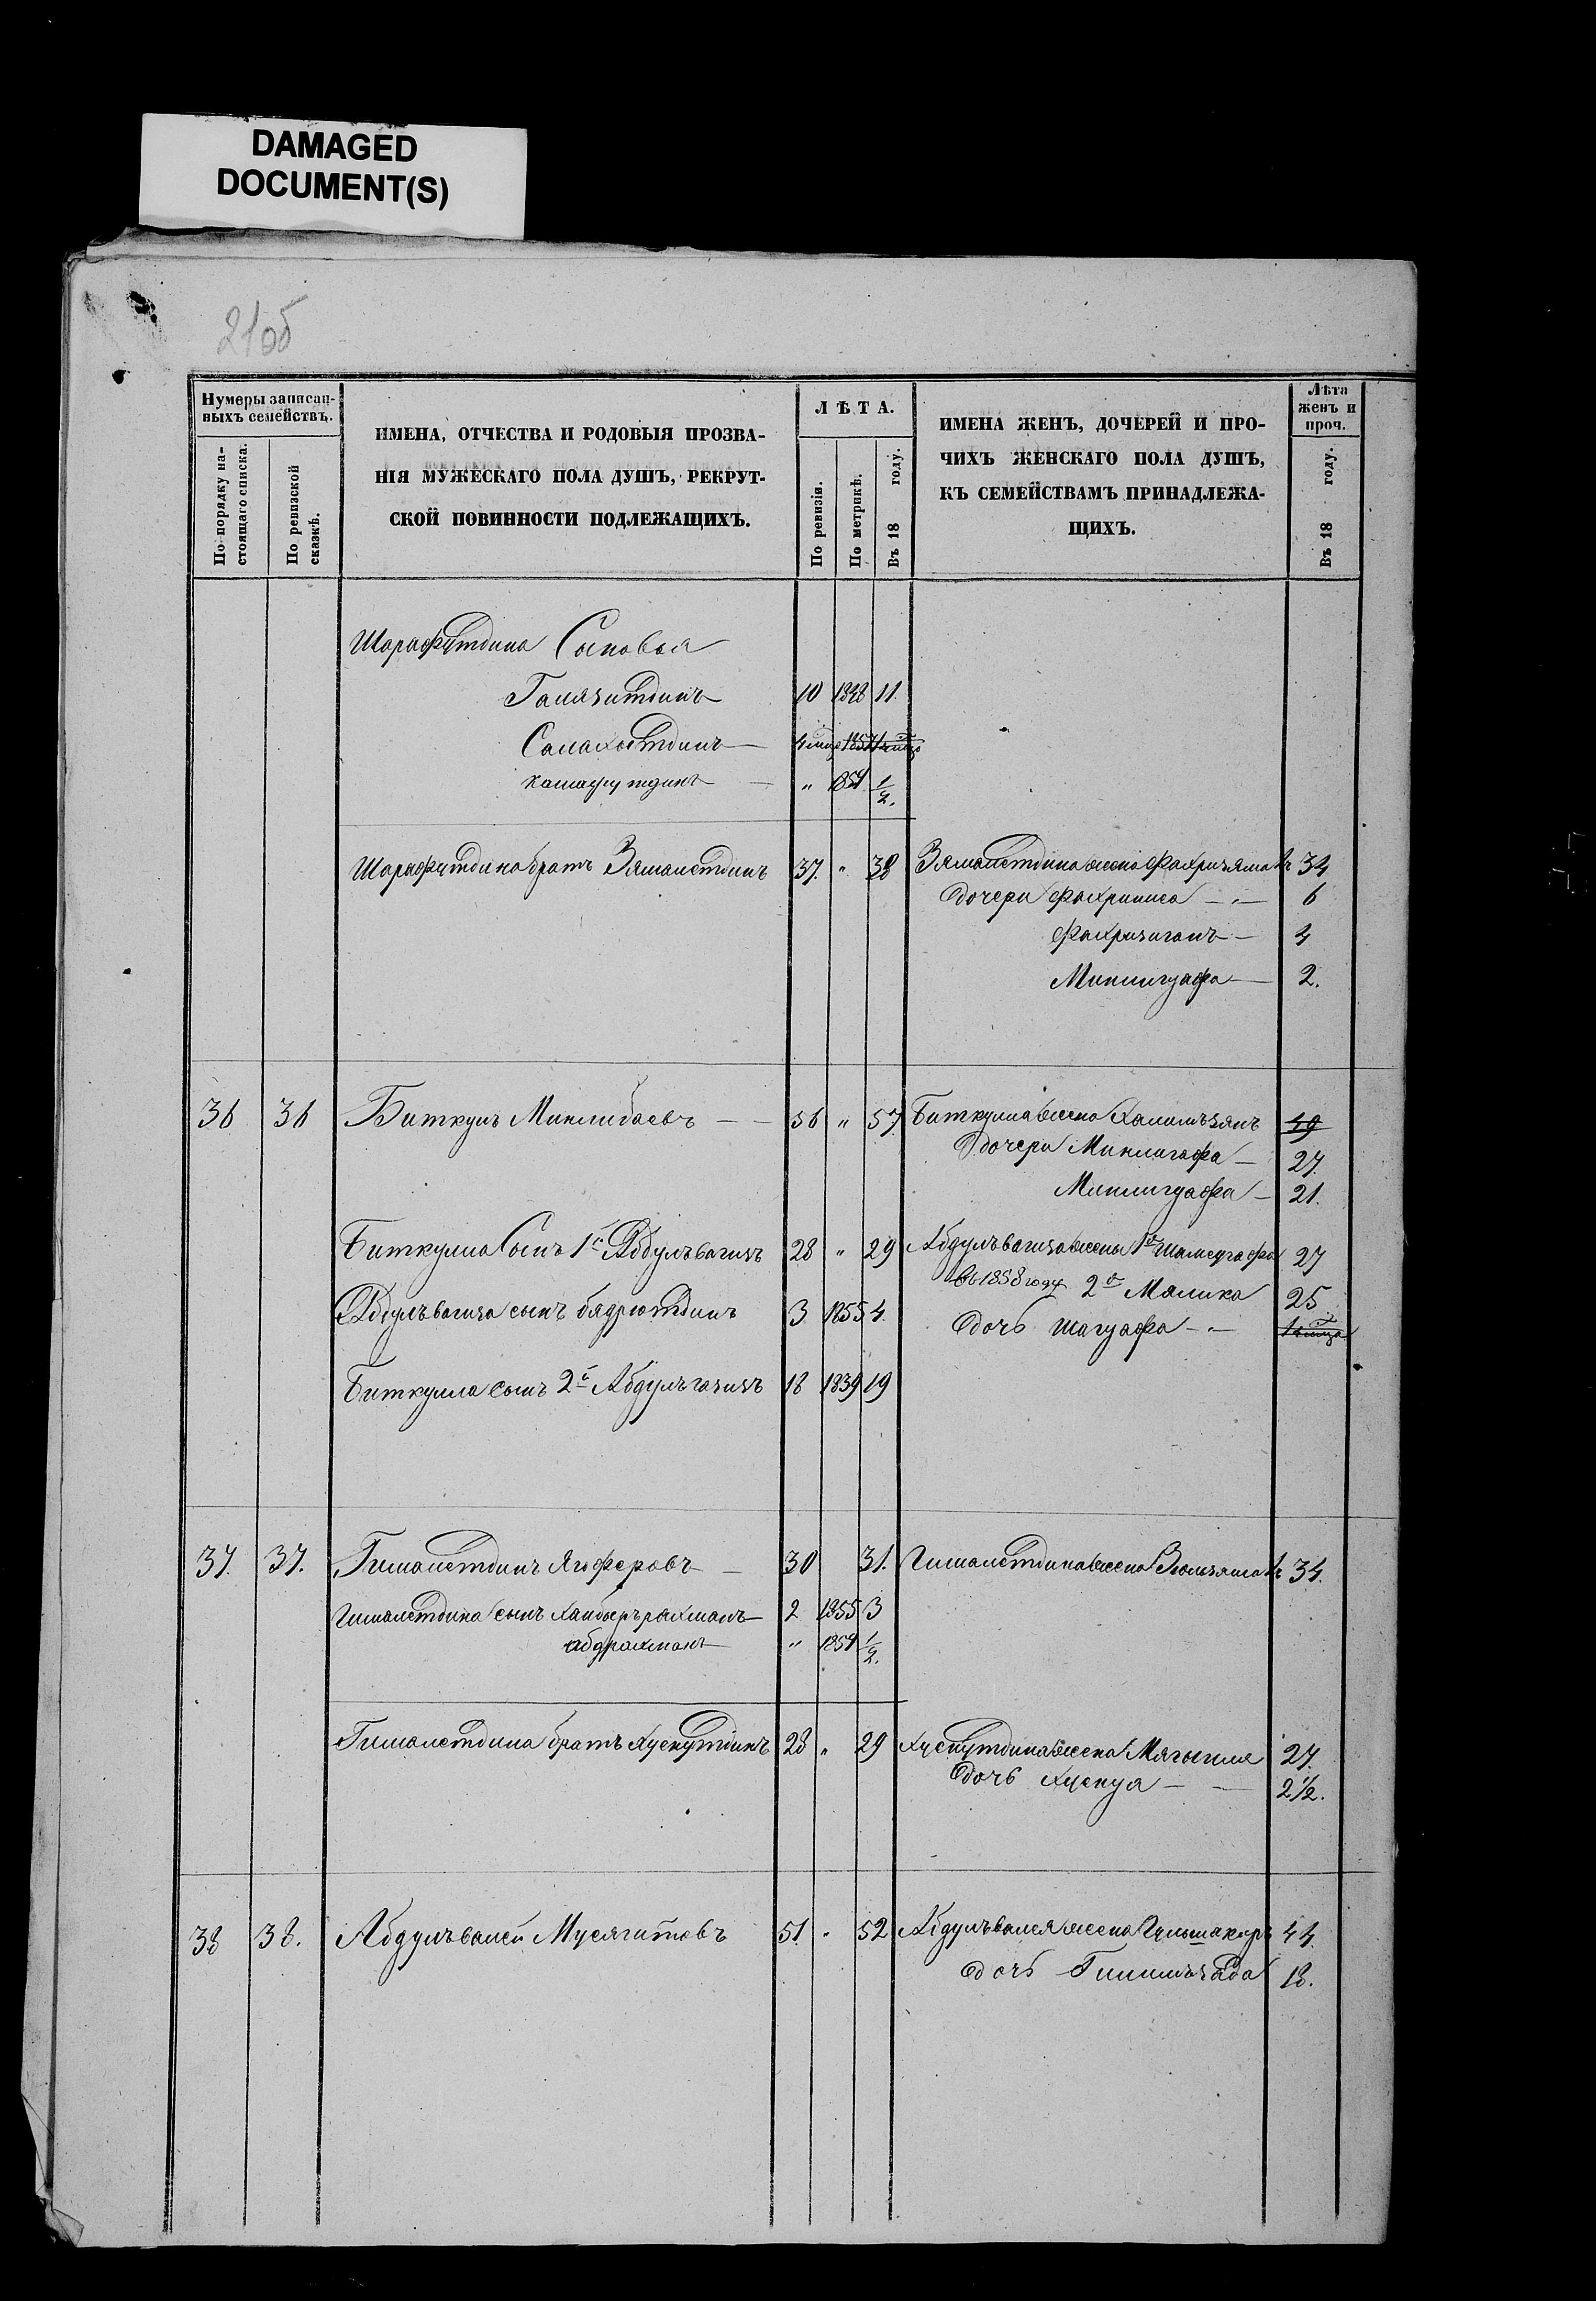 DAMAGED
DOCUMENT(S)
21об
Нумеры записан-
ныхъ семействъ.
По порядку на-
стоящаго списка.
По ревизской
сказкѣ.
ИМЕНА, ОТЧЕСТВА И РОДОВЫЯ ПРОЗВА-
НІЯ МУЖЕСКАГО ПОЛА ДУШЪ, РЕКРУТ-
СКОЙ ПОВИННОСТИ ПОДЛЕЖАЩИХЪ.
ЛѢТА.
По ревизіи.
По метрикѣ.
Въ 18 году.
ИМЕНА ЖЕНЪ, ДОЧЕРЕЙ И ПРО-
ЧИХЪ ЖЕНСКАГО ПОЛА ДУШЪ,
КЪ СЕМЕЙСТВАМЪ ПРИНАДЛЕЖА-
ЩИХЪ.
Лѣта
женъ и
проч.
Въ 18 году.
Шарафутдина Сыновья
Галязитдинъ 10 1848 11.
Салахытдинъ 1857
Камалутдинъ " 1859 1/2.
Шарафутдина братъ Зямалетдинъ 37. " 38 Зямалетдина жена Фахризямалъ 34
дочери Фахриниса 6
Фахризиганъ 4
Минлигуафа 2.
36 36 Биткулъ Минлибаевъ 56 " 57 Биткула жена Халимъзянъ 49
дочери Минлигафа 27.
Минлигуафа 21.
Биткула Сынъ 1й Абдулъвагизъ 28 " 29 Абдулъвагиза жены 1я Шамсугафа 27
въ 1858 году 2я Малика 25
Абдулъвагиза сынъ Бядрютдинъ 3 1855 4. дочь Шагуафа
Биткула сынъ 2й Абдулъгазизъ 18 1839 19
37. 37. Гималетдинъ Ягоферовъ 30 31. Гималетдина жена Зюльзямалъ 34.
Гималетдина сынъ Хабыръ рахманъ 2 1855 3
Абдрахманъ " 1859 1/2.
Гималетдина братъ Хуснутдинъ 28 " 29 Хуснутдина жена Мягыпия 27.
дочь Хуснуя 2 1/2.
38 38. Абдулъвалей Мусягитовъ 51. " 52 Абдулъвалея жена Гульшакаръ 44.
дочь Гилимъзада 18.